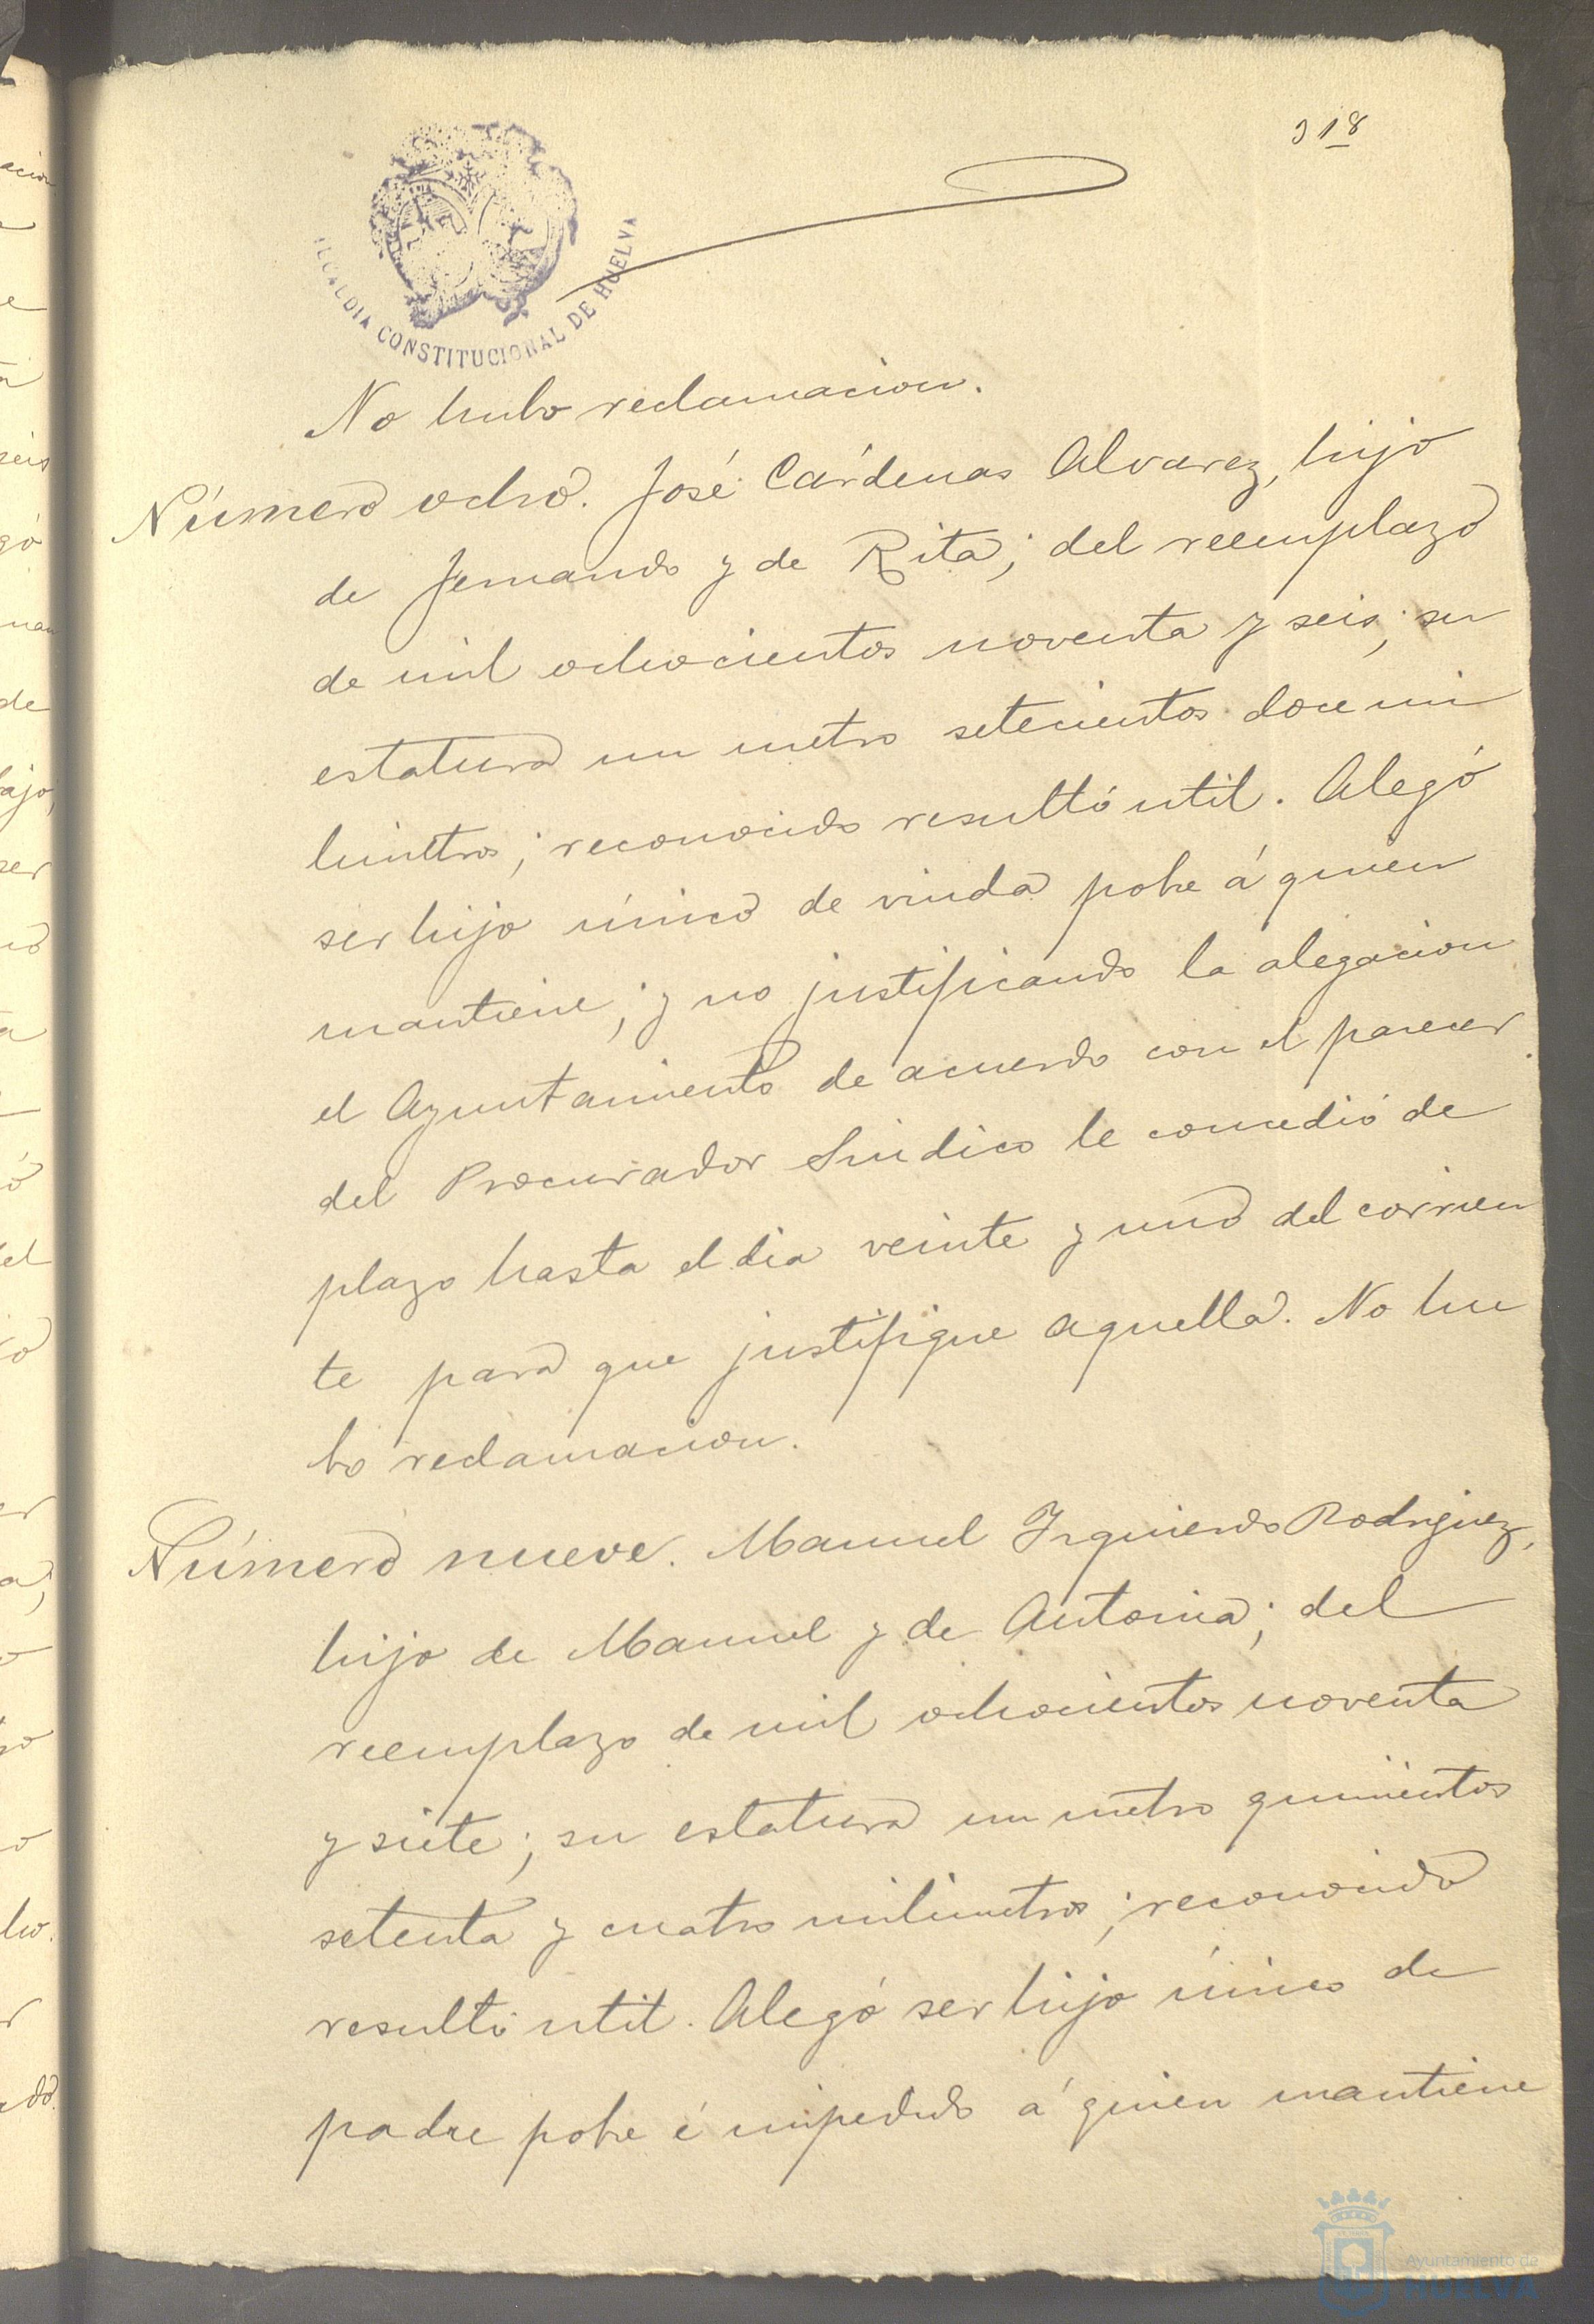 318
ALCALDIA CONSTITUCIONAL DE HUELVA
No hubo reclamacion.
Número ocho. José Cárdenas Alvarez, hijo
de Fernando y de Rita; del reemplazo
de mil ochocientos noventa y seis; su
estatura un metro setecientos doce mi
limitros; reconocido resultó util. Alegó
ser hijo único de viuda pobre á quien
mantiene; y no justificando la alegacion
el Ayuntamiento de acuerdo con el parecer
del Procurador Sindico le concedió de
plazo hasta el dia veinte y uno del corrien
te para que justifique aquella. No hu
bo reclamacion.
Número nueve. Manuel Izquierdo Rodriguez,
hijo de Manuel y de Antonia; del
reemplazo de mil ochocientos noventa
y siete; su estatura un metro quinientos
setenta y cuatro milimetros; reconocido
resultó util. Alegó ser hijo único de
padre pobre é impedido á quien mantiene
Ayuntamiento de
HUELVA